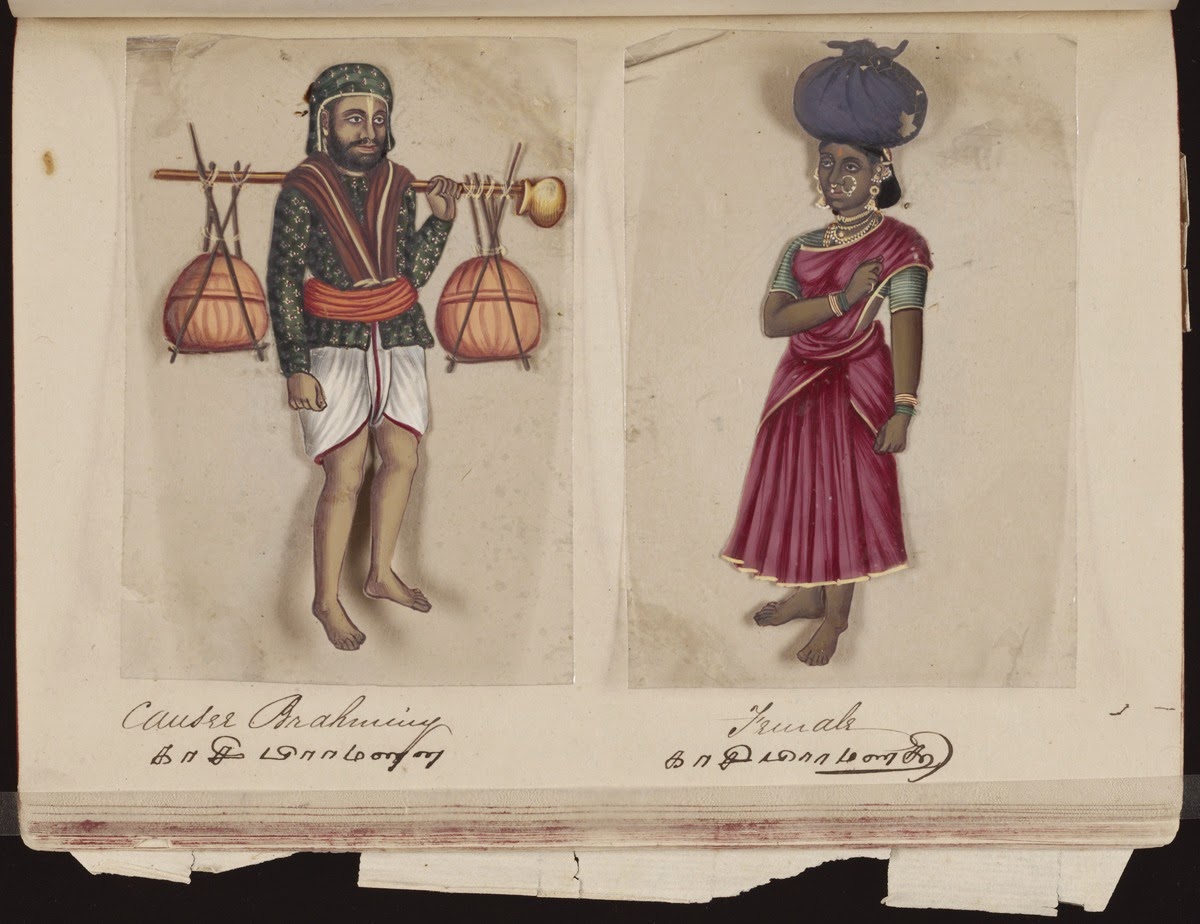 Causee Brahminy
காசி பிராமணன
Female
காசி